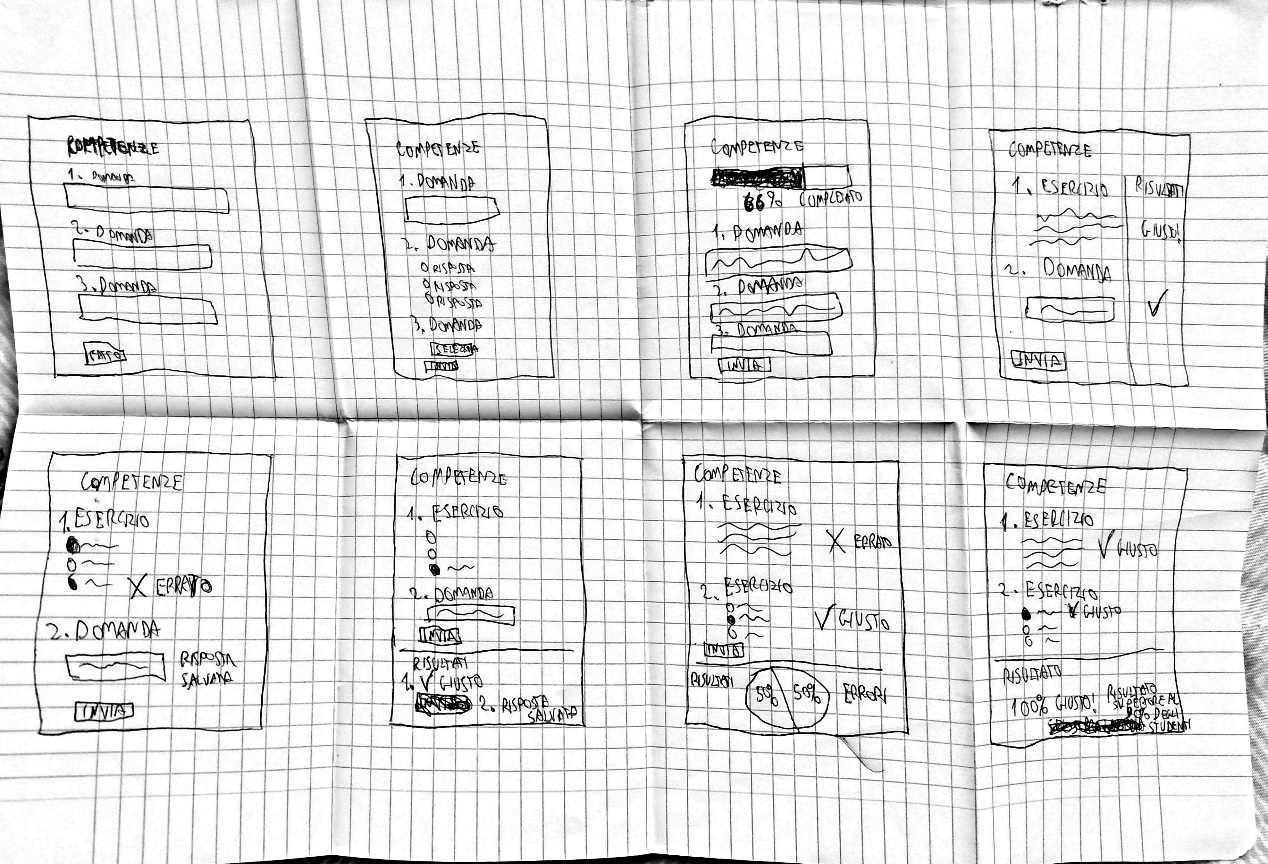 COMPETENZE
1. DOMANDA
2. DOMANDA
3. DOMANDA
FATTO
COMPETENZE
1. DOMANDA
2. DOMANDA
O RISPOSTA
O RISPOSTA
O RISPOSTA
3. DOMANDA
SELEZIONA
INVIA
COMPETENZE
66% COMPLETATO
1. DOMANDA
2. DOMANDA
3. DOMANDA
INVIA
COMPETENZE
1. ESERCIZIO
RISULTATI
GIUSTO!
2. DOMANDA
INVIA
COMPETENZE
1. ESERCIZIO
X ERRATO
2. DOMANDA
RISPOSTA
SALVATA
INVIA
COMPETENZE
1. ESERCIZIO
2. DOMANDA
INVIA
RISULTATI
1. ✓ GIUSTO
2. RISPOSTA
SALVATA
COMPETENZE
1. ESERCIZIO
X ERRATO
2. ESERCIZIO
✓ GIUSTO
INVIA
RISULTATI
50% 50% ERRORI
COMPETENZE
1. ESERCIZIO
✓ GIUSTO
2. ESERCIZIO
✓ GIUSTO
RISULTATO
100% GIUSTO!
RISULTATO
SUPERIORE AL
DEGLI
STUDENTI